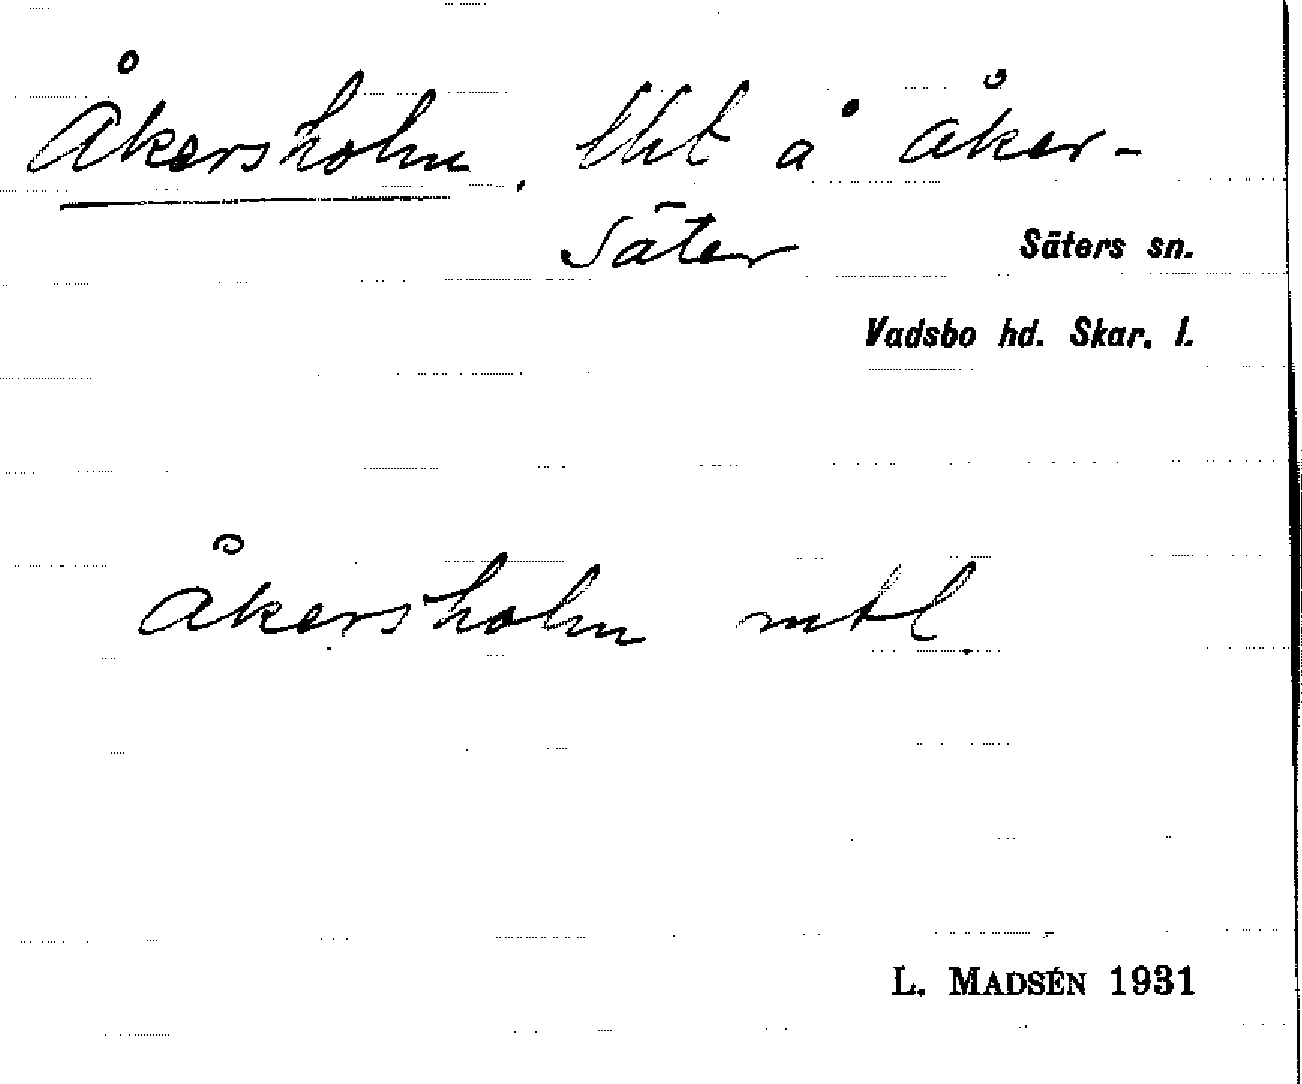 Åkersholm, lht å Åker-
säter
Säters sn.
Vadsbo hd. Skar. l.
Åkersholm mtl.
L. MADSÉN 1931